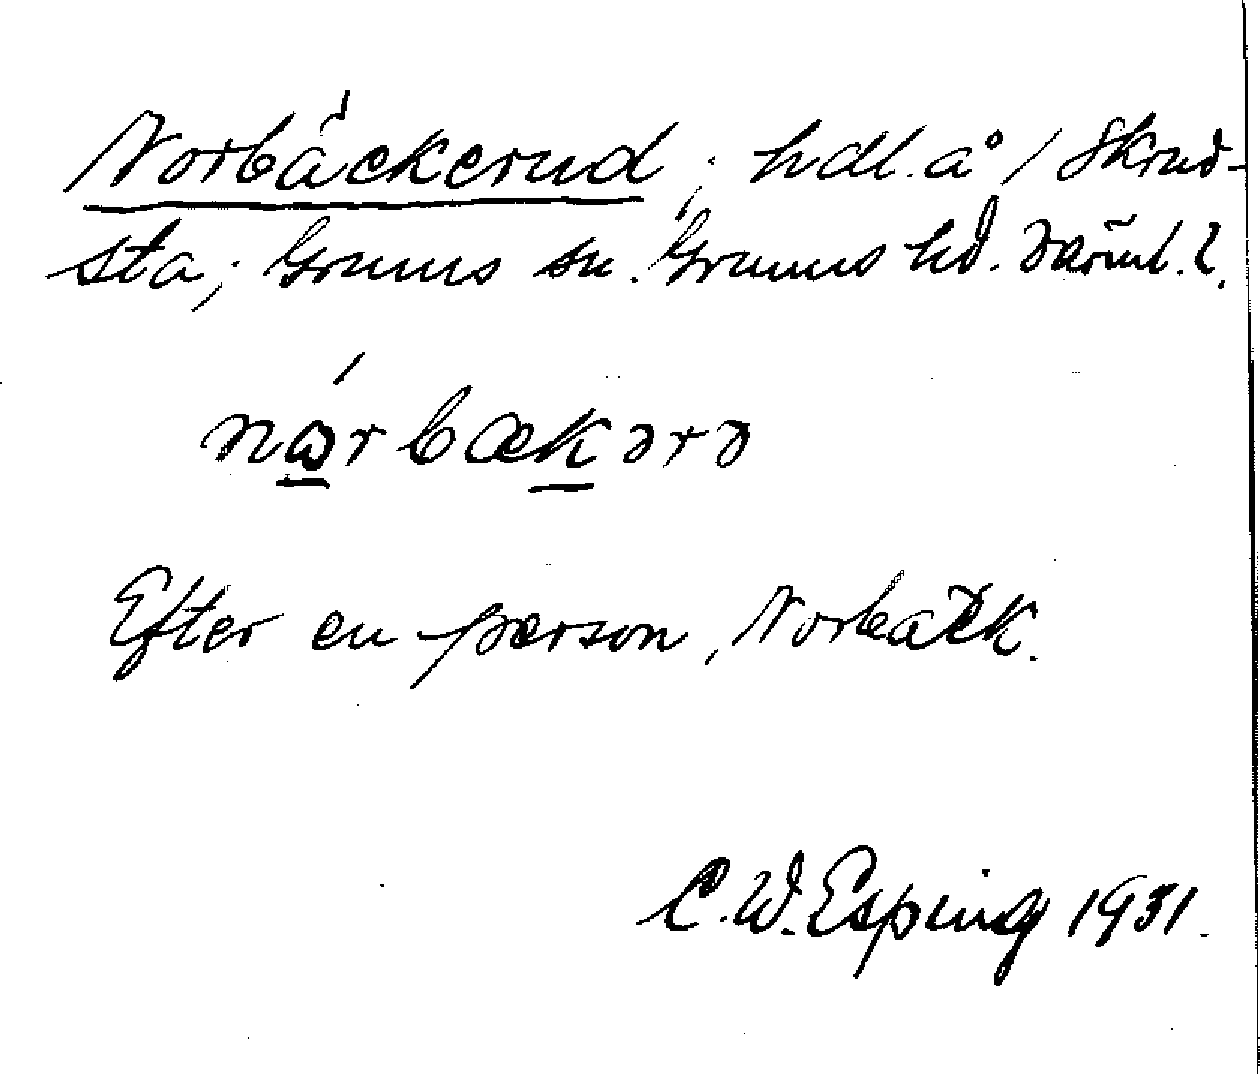 Norbäckerud; hdl. å 1 Skrud-
sta; Grums sn. Grums hd. Värml. l.
nørbækərə
Efter en person, Norbäck.
C.W. Esping 1931.